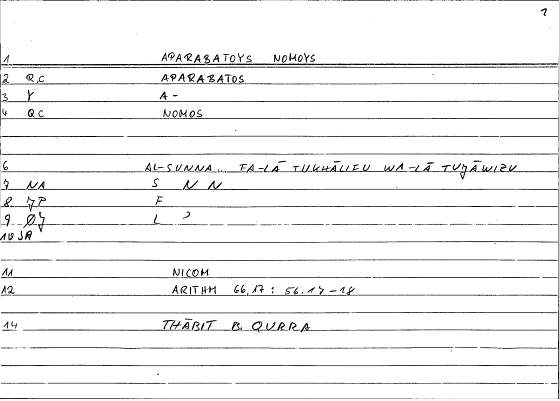 1
1 APARABATOYS NOMOYS
2 Q,C APARABATOS
3 Y A-
4 QC NOMOS
6 AL-SUNNA... FA-LĀ TUKHĀLIFU WA-LĀ TUJĀWIZU
7 NA S N N
8 JP F
9 ØJ L ʾ
10 JA
11 NICOM
12 ARITHM 66,17 : 56.17-18
14 THĀBIT B. QURRA